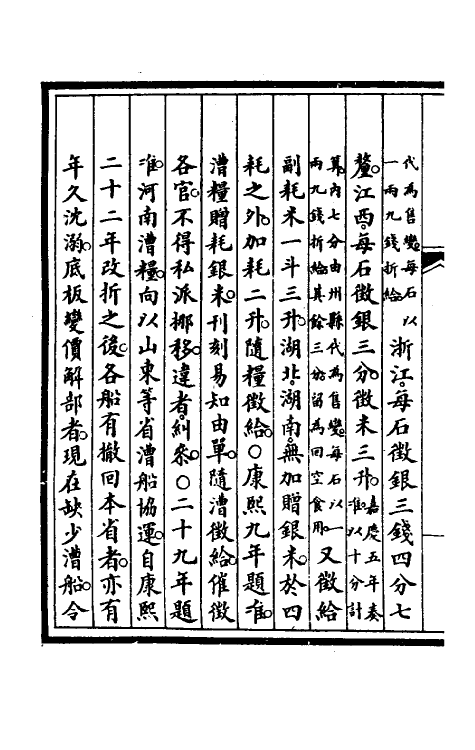 代為售變每石以一兩九錢折給浙江每石徵銀三錢四分七
釐江西每石徵銀三分徵米三升嘉慶五年奏准以十分計
算內七分由州縣代為售變每石以一兩九錢折給其餘三分留為回空食用又徵給
副耗米一斗三升湖北湖南無加贈銀米於四
耗之外加耗二升隨糧徵給○康熙九年題准
漕糧贈耗銀米刊刻易知由單隨漕徵給催徵
各官不得私派挪移違者糾叅○二十九年題
准河南漕糧向以山東等省漕船協運自康熙
二十二年改折之後各船有撤回本省者亦有
年久沈溺底板變價解部者現在缺少漕船令